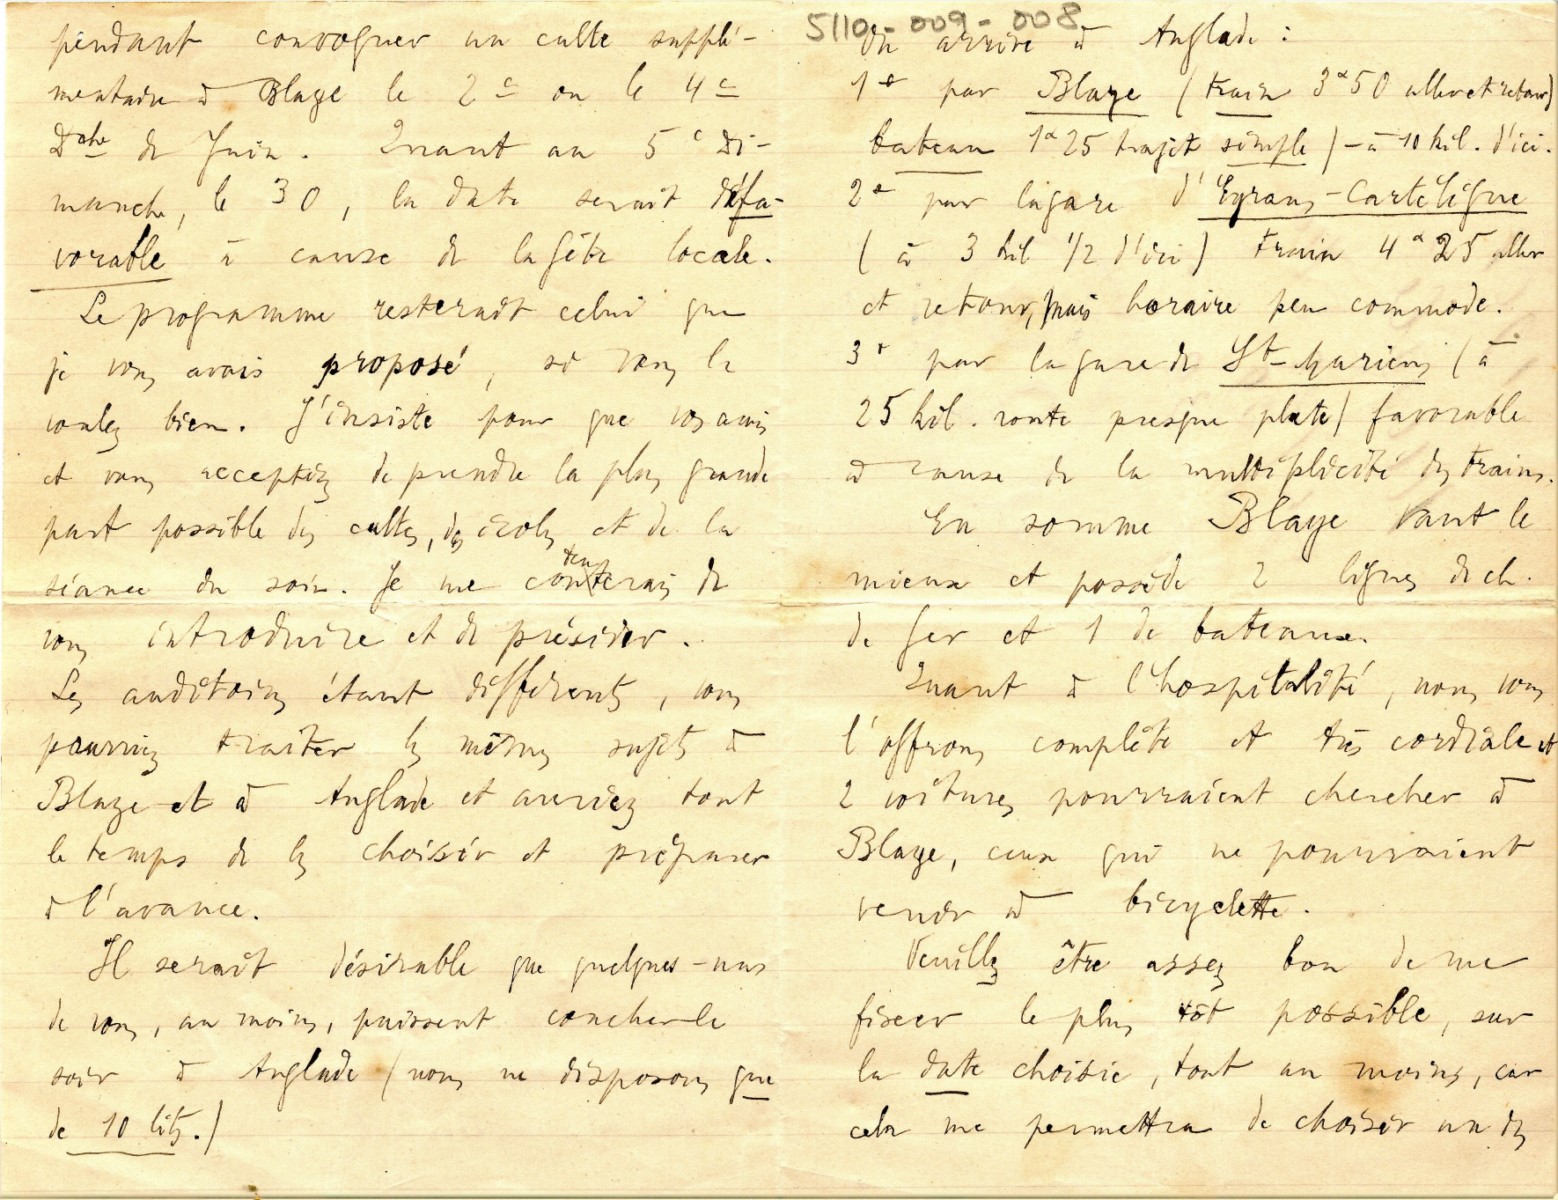 pendant convoquer un culte supplé-
mentaire à Blaye le 2e ou le 4e
Dche de Juin. Quant au 5e Di-
manche, le 30, la date serait défa-
vorable à cause de la fête locale.
Le programme resterait celui que
je vous avais proposé, si vous le
voulez bien. J'insiste pour que vos amis
et vous acceptiez de prendre la plus grande
part possible des cultes, des écoles et de la
séance du soir. Je me contenterais de
vous introduire et de présider.
Les auditoires étant différents, vous
pourriez traiter les mêmes sujets à
Blaye et à Anglade et auriez tout
le temps de les choisir et préparer
à l'avance.
Il serait désirable que quelques-uns
de vous, au moins, puissent coucher le
soir à Anglade (nous ne disposons que
de 10 lits.)
5110-009-008
On arrive à Anglade :
1° par Blaye (train 3f50 aller et retour)
bateau 1f25 trajet simple) - à 10 kil. d'ici.
2° par la gare d'Eyrans-Cartelègue
(à 3 kil 1/2 d'ici) train 4f25 aller
et retour, mais horaire peu commode.
3° par la gare de St-Mariens (à
25 kil. route presque plate) favorable
à cause de la multiplicité des trains.
En somme Blaye vaut le
mieux et possède 2 lignes de ch.
de fer et 1 de bateaux.
Quant à l'hospitalité, nous vous
l'offrons complète et très cordiale et
2 voitures pourraient chercher à
Blaye, ceux qui ne pourraient
venir à bicyclette.
Veuillez être assez bon de me
fixer le plus tôt possible, sur
la date choisie, tout au moins, car
cela me permettra de choisir un des